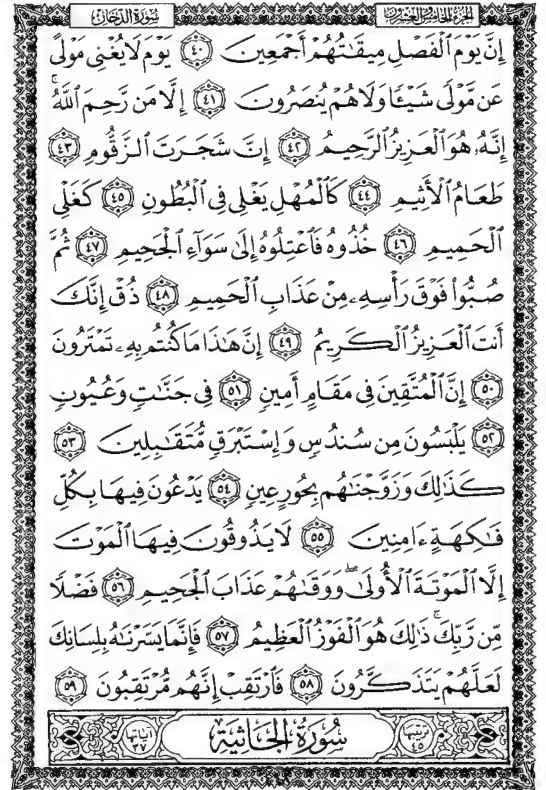 الجزء الخامس والعشرون
سورة الدخان
إِنَّ يَوْمَ ٱلْفَصْلِ مِيقَٰتُهُمْ أَجْمَعِينَ ٤٠ يَوْمَ لَا يُغْنِى مَوْلًى
عَن مَّوْلًى شَيْـًٔا وَلَا هُمْ يُنصَرُونَ ٤١ إِلَّا مَن رَّحِمَ ٱللَّهُ ۚ
إِنَّهُۥ هُوَ ٱلْعَزِيزُ ٱلرَّحِيمُ ٤٢ إِنَّ شَجَرَتَ ٱلزَّقُّومِ ٤٣
طَعَامُ ٱلْأَثِيمِ ٤٤ كَٱلْمُهْلِ يَغْلِى فِى ٱلْبُطُونِ ٤٥ كَغَلْىِ
ٱلْحَمِيمِ ٤٦ خُذُوهُ فَٱعْتِلُوهُ إِلَىٰ سَوَآءِ ٱلْجَحِيمِ ٤٧ ثُمَّ
صُبُّوا۟ فَوْقَ رَأْسِهِۦ مِنْ عَذَابِ ٱلْحَمِيمِ ٤٨ ذُقْ إِنَّكَ
أَنتَ ٱلْعَزِيزُ ٱلْكَرِيمُ ٤٩ إِنَّ هَٰذَا مَا كُنتُم بِهِۦ تَمْتَرُونَ
٥٠ إِنَّ ٱلْمُتَّقِينَ فِى مَقَامٍ أَمِينٍ ٥١ فِى جَنَّٰتٍ وَعُيُونٍ
٥٢ يَلْبَسُونَ مِن سُندُسٍ وَإِسْتَبْرَقٍ مُّتَقَٰبِلِينَ ٥٣
كَذَٰلِكَ وَزَوَّجْنَٰهُم بِحُورٍ عِينٍ ٥٤ يَدْعُونَ فِيهَا بِكُلِّ
فَٰكِهَةٍ ءَامِنِينَ ٥٥ لَا يَذُوقُونَ فِيهَا ٱلْمَوْتَ
إِلَّا ٱلْمَوْتَةَ ٱلْأُولَىٰ ۖ وَوَقَىٰهُمْ عَذَابَ ٱلْجَحِيمِ ٥٦ فَضْلًا
مِّن رَّبِّكَ ۚ ذَٰلِكَ هُوَ ٱلْفَوْزُ ٱلْعَظِيمُ ٥٧ فَإِنَّمَا يَسَّرْنَٰهُ بِلِسَانِكَ
لَعَلَّهُمْ يَتَذَكَّرُونَ ٥٨ فَٱرْتَقِبْ إِنَّهُم مُّرْتَقِبُونَ ٥٩
ترتيبها ٤٥
سُورَةُ الجَاثِيَةِ
آياتها ٣٧